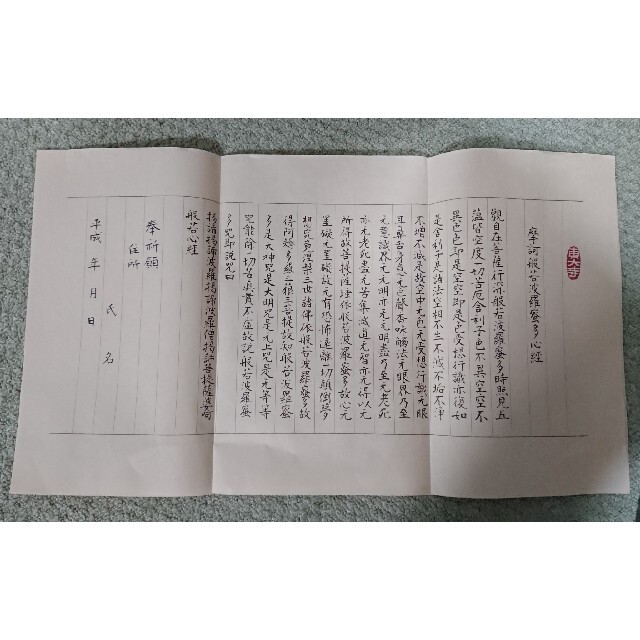 東大寺
摩訶般若波羅蜜多心経
観自在菩薩行深般若波羅蜜多時照見五
蘊皆空度一切苦厄舎利子色不異空空不
異色色即是空空即是色受想行識亦復如
是舎利子是諸法空相不生不滅不垢不浄
不増不減是故空中无色无受想行識无眼
耳鼻舌身意无色聲香味觸法无眼界乃至
无意識界无无明亦无无明盡乃至无老死
亦无老死盡无苦集滅道无智亦无得以无
所得故菩提薩埵依般若波羅蜜多故心无
罣礙无罣礙故无有恐怖遠離一切顛倒夢
想究竟涅槃三世諸佛依般若波羅蜜多故
得阿耨多羅三藐三菩提故知般若波羅蜜
多是大神咒是大明咒是无上咒是无等等
咒能除一切苦真實不虚故説般若波羅蜜
多咒即説咒曰
掲諦掲諦波羅掲諦波羅僧掲諦菩提薩婆訶
般若心経
奉祈願
住所
氏名
平成 年 月 日